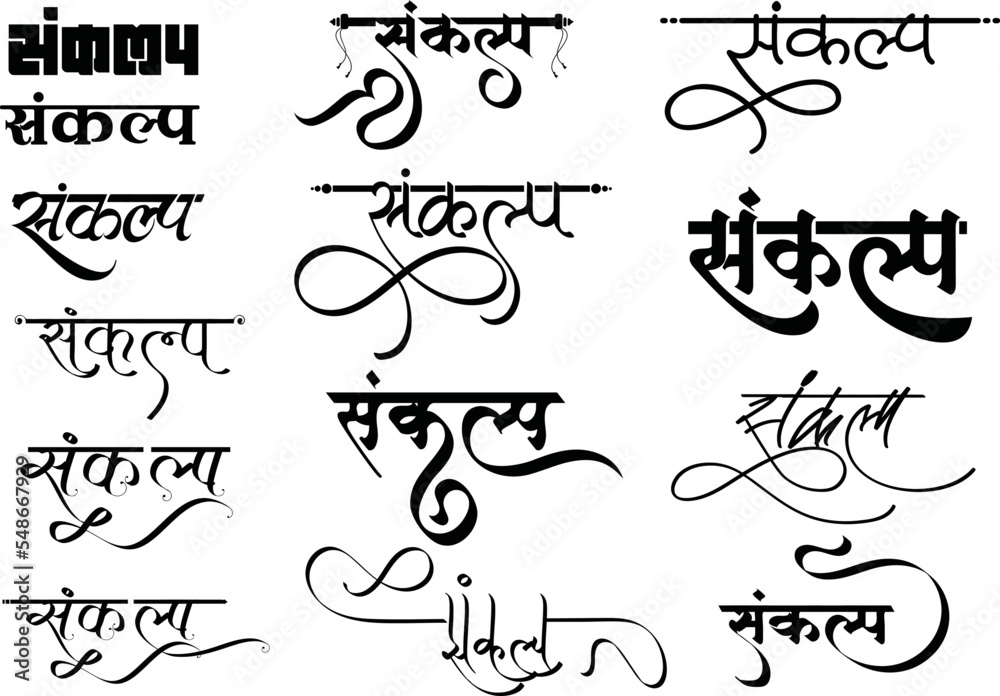 संकल्प
संकल्प
संकल्प
संकल्प
संकल्प
संकल्प
संकल्प
संकल्प
संकल्प
संकल्प
संकल्प
संकल्प
संकल्प
संकल्प
Adobe Stock | #548667929